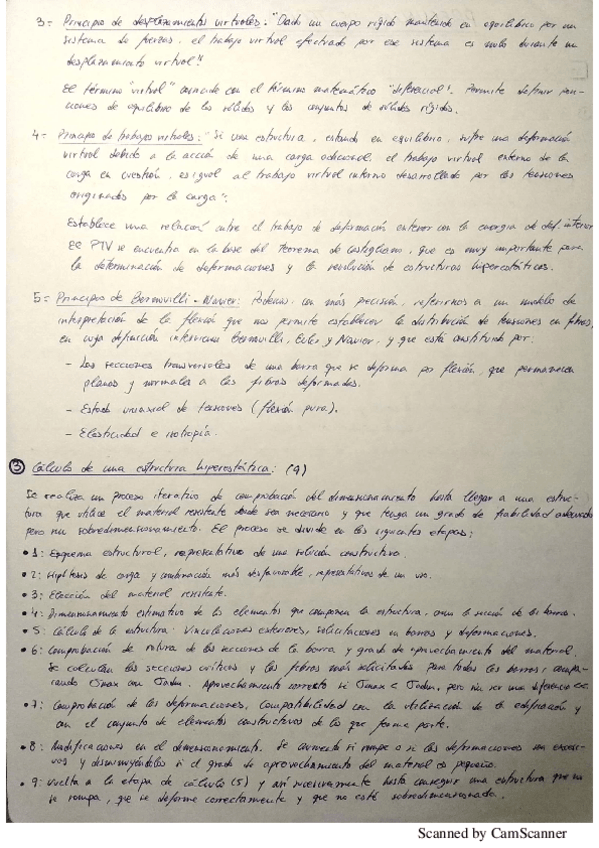 3= Principio de desplazamientos virtuales: "Dado un cuerpo rígido mantenido en equilibrio por un
sistema de fuerzas, el trabajo virtual efectuado por ese sistema es nulo durante un
desplazamiento virtual"
El término "virtual" coincide con el término matemático "diferencial". Permite definir posi-
ciones de equilibrio de los sólidos y los conjuntos de sólidos rígidos.
4= Principio de trabajos virtuales: "Si una estructura, estando en equilibrio, sufre una deformación
virtual debido a la acción de una carga adicional, el trabajo virtual externo de la
carga en cuestión, es igual al trabajo virtual interno desarrollado por las tensiones
originadas por la carga".
Establece una relación entre el trabajo de deformación exterior con la energía de def. interior
El PTV se encuentra en la base del Teorema de Castigliano, que es muy importante para
la determinación de deformaciones y la resolución de estructuras hiperestáticas.
5= Principio de Bernouilli - Navier: Podemos, con más precisión, referirnos a un modelo de
interpretación de la flexión que nos permite establecer la distribución de tensiones en fibras,
en cuya definición intervienen Bernouilli, Euler y Navier, y que está constituido por:
- Las secciones transversales de una barra que se deforma por flexión, que permanecen
planas y normales a las fibras deformadas.
- Estado uniaxial de tensiones (flexión pura).
- Elasticidad e isotropía.
③ Cálculo de una estructura hiperestática: (9)
Se realiza un proceso iterativo de comprobación del dimensionamiento hasta llegar a una estruc-
tura que utilice el material resistente donde sea necesario y que tenga un grado de fiabilidad adecuado
pero no sobredimensionamiento. El proceso se divide en las siguientes etapas:
• 1: Esquema estructural, representativo de una solución constructiva.
• 2: Hipótesis de carga y combinación más desfavorable, representativas de un uso.
• 3: Elección del material resistente.
• 4: Dimensionamiento estimativo de los elementos que componen la estructura, sección de las barras.
• 5: Cálculo de la estructura: Vinculaciones exteriores, solicitaciones en barras y deformaciones.
• 6: Comprobación de rotura de las secciones de la barra y grado de aprovechamiento del material.
Se calculan las secciones críticas y las fibras más solicitadas para todas las barras; compa-
rando σmax con σadm. Aprovechamiento correcto si σmax < σadm, pero sin ser una diferencia
• 7: Comprobación de las deformaciones. Compatibilidad con la utilización de la edificación y
con el conjunto de elementos constructivos de los que forma parte.
• 8: Modificaciones en el dimensionamiento. Se aumenta si rompe o si las deformaciones son exces-
ivas y disminuyéndolas si el grado de aprovechamiento del material es pequeño.
• 9: Vuelta a la etapa de cálculo (5) y así sucesivamente hasta conseguir una estructura que no
se rompa, que se deforme correctamente y que no esté sobredimensionada.
Scanned by CamScanner